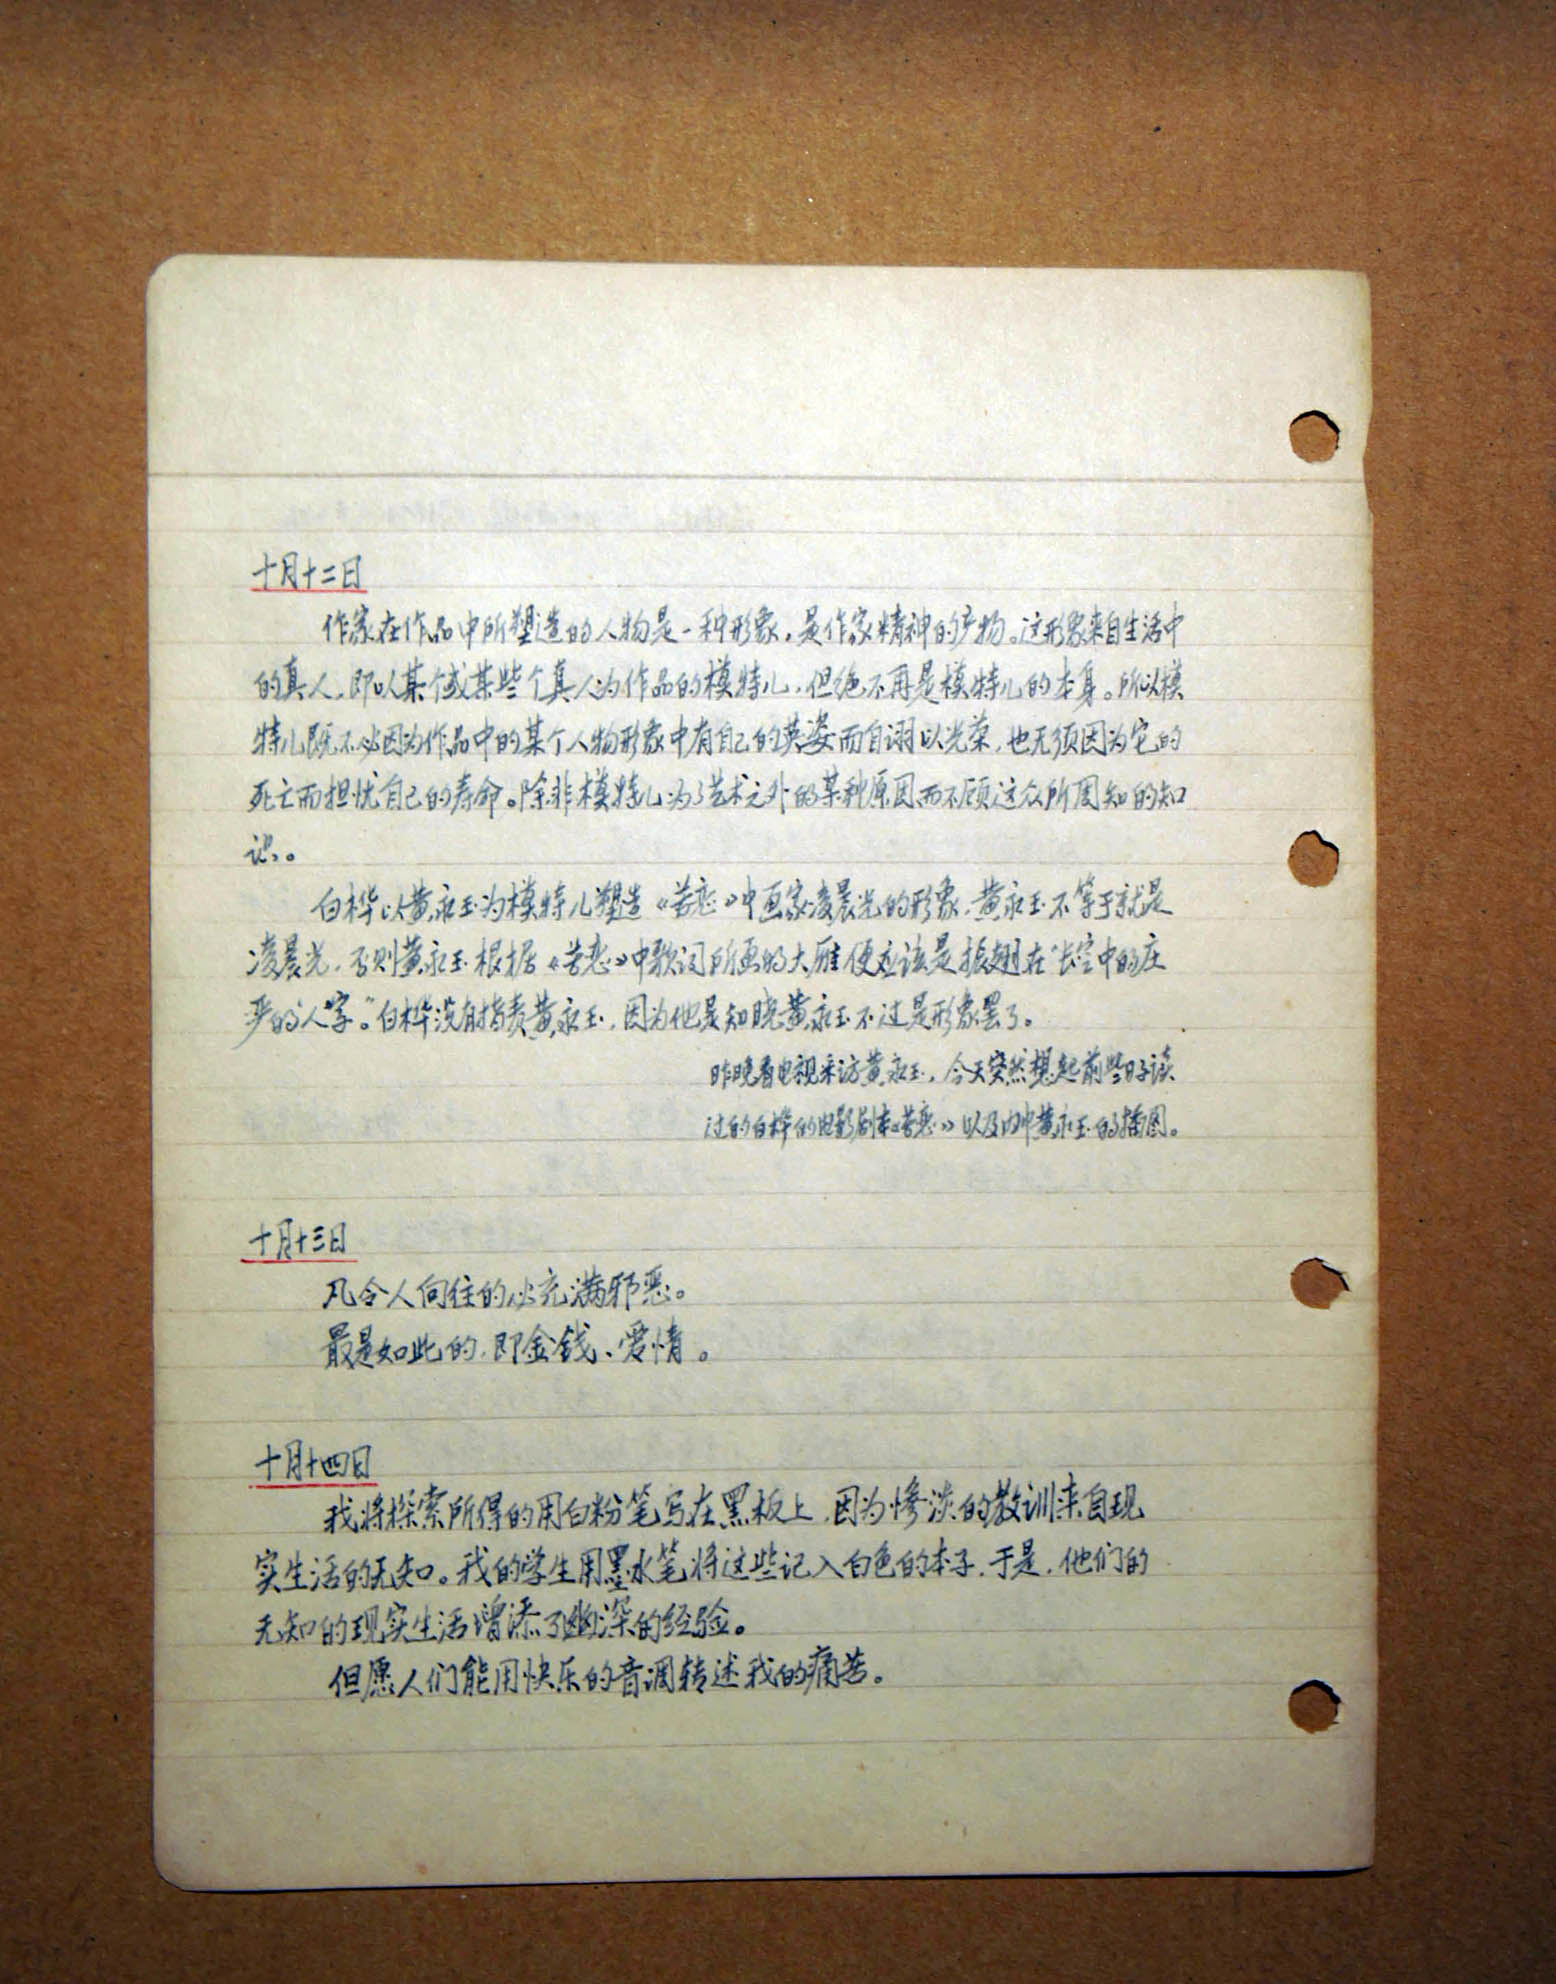 十月十二日
作家在作品中所塑造的人物是一种形象,是作家精神的产物。这形象来自生活中
的真人,即以某个或某些个真人为作品的模特儿,但绝不再是模特儿的本身。所以模
特儿既不必因为作品中的某个人物形象中有自己的英姿而自诩以光荣,也无须因为它的
死亡而担忧自己的寿命。除非模特儿为了艺术之外的某种原因而不顾这众所周知的知
识。
白桦以黄永玉为模特儿塑造《苦恋》中画家凌晨光的形象,黄永玉不等于就是
凌晨光,否则黄永玉根据《苦恋》中歌词所画的大雁便应该是振翅在“长空中的庄
严的人字。”白桦没有指责黄永玉,因为他是知晓黄永玉不过是形象罢了。
昨晚看电视采访黄永玉,今天突然想起前些日子读
过的白桦的电影剧本《苦恋》以及内中黄永玉的插图。
十月十三日
凡令人向往的必充满邪恶。
最是如此的,即金钱、爱情。
十月十四日
我将探索所得的用白粉笔写在黑板上,因为惨淡的教训来自现
实生活的无知。我的学生用墨水笔将这些记入白色的本子,于是,他们的
无知的现实生活增添了幽深的经验。
但愿人们能用快乐的音调转述我的痛苦。